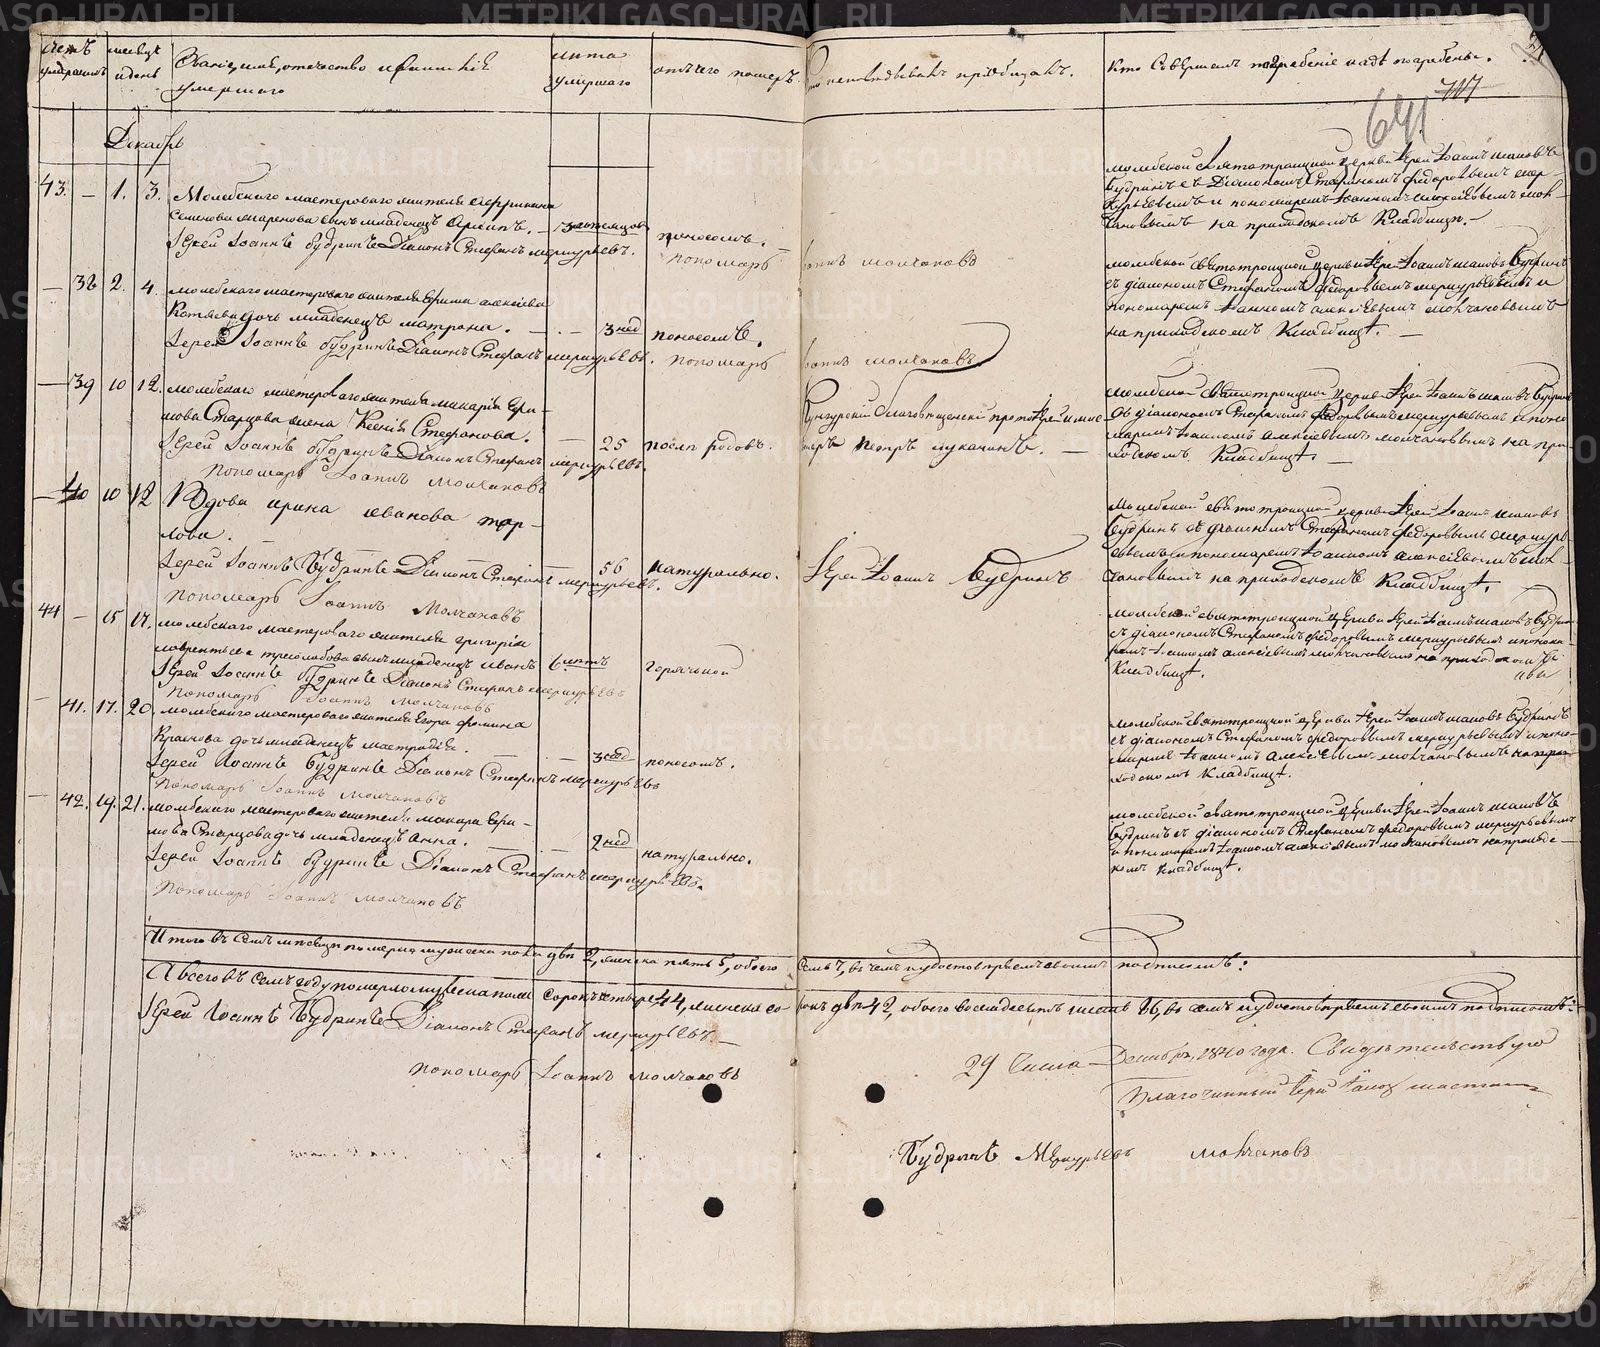 METRIKI.GASO-URAL.RU
Счетъ умершихъ
месяцъ и день
Званіе, имя, отечество и фамиліе умершаго
лета умершаго
отъ чего померъ
Кто исповѣдывалъ и пріобщалъ.
Кто совершалъ погребеніе и гдѣ погребены.
641
Декабрь
43. — 1. 3. Молебскаго мастероваго жителя
Семенова сынъ младенецъ Архипъ. —
поносомъ.
Іерей Іоаннъ Будринъ Діаконъ Стефанъ Меркурьевъ.
Пономарь Іоаннъ Молчановъ
Молебской Святотроицкой церкви Іерей Іоаннъ
Будринъ съ Діакономъ Стефаномъ Федоровымъ Мер-
курьевымъ и пономаремъ Іоанномъ Алексѣевымъ Мол-
чановымъ на приходскомъ Кладбищѣ. —
— 38 2. 4. Молебскаго мастероваго жителя Ефима Алексѣева
дочь младенецъ Матрона. — 3 нед поносомъ.
Іерей Іоаннъ Будринъ Діаконъ Стефанъ Меркурьевъ. Пономарь Іоаннъ Молчановъ
Молебской Святотроицкой церкви Іерей Іоаннъ Будринъ
съ діакономъ Стефаномъ Федоровымъ Меркурьевымъ и
пономаремъ Іоанномъ Алексѣевымъ Молчановымъ
на приходскомъ Кладбищѣ. —
— 39 10 12. Молебскаго мастероваго жителя Макарія Ефи-
мова Старцова жена Ксенія Стефанова. — 25 послѣ родовъ.
Іерей Іоаннъ Будринъ Діаконъ Стефанъ Меркурьевъ.
Пономарь Іоаннъ Молчановъ
Кунгурскій Благовѣщенскій протоіерей
Петръ Лукачинъ. —
Молебской Святотроицкой церкви Іерей Іоаннъ Будринъ
съ діакономъ Стефаномъ Федоровымъ Меркурьевымъ и поно-
маремъ Іоанномъ Алексѣевымъ Молчановымъ на при-
ходскомъ Кладбищѣ. —
— 40 10 12 Вдова Ирина Иванова
56 натурально. Іерей Іоаннъ Будринъ
Іерей Іоаннъ Будринъ Діаконъ Стефанъ Меркурьевъ.
Пономарь Іоаннъ Молчановъ
Молебской Святотроицкой церкви Іерей Іоаннъ
Будринъ съ діакономъ Стефаномъ Федоровымъ Меркурь-
евымъ и пономаремъ Іоанномъ Алексѣевымъ Мол-
чановымъ на приходскомъ Кладбищѣ.
44 — 15 17. Молебскаго мастероваго жителя Григорія
Лаврентьева сынъ младенецъ Иванъ 6 лѣтъ горячкой
Іерей Іоаннъ Будринъ Діаконъ Стефанъ Меркурьевъ
Пономарь Іоаннъ Молчановъ
Молебской Святотроицкой церкви Іерей Іоаннъ Будринъ
съ діакономъ Стефаномъ Федоровымъ Меркурьевымъ и понома-
ремъ Іоанномъ Алексѣевымъ Молчановымъ на приходскомъ
Кладбищѣ.
— 41. 17. 20. Молебскаго мастероваго жителя Егора Фомина
Краснова дочь младенецъ — 3 нед поносомъ.
Іерей Іоаннъ Будринъ Діаконъ Стефанъ Меркурьевъ
Пономарь Іоаннъ Молчановъ
Молебской Святотроицкой церкви Іерей Іоаннъ Будринъ
съ діакономъ Стефаномъ Федоровымъ Меркурьевымъ и поно-
маремъ Іоанномъ Алексѣевымъ Молчановымъ на при-
ходскомъ Кладбищѣ.
— 42. 19. 21. Молебскаго мастероваго жителя Макара Ефи-
мова Старцова дочь младенецъ Анна. — 2 нед натурально.
Іерей Іоаннъ Будринъ Діаконъ Стефанъ Меркурьевъ.
Пономарь Іоаннъ Молчановъ
Молебской Святотроицкой церкви Іерей Іоаннъ
Будринъ съ діакономъ Стефаномъ Федоровымъ Меркурьевымъ
и пономаремъ Іоанномъ Алексѣевымъ Молчановымъ на приходс-
комъ Кладбищѣ.
Итого въ семъ месяце померло мужеска пола два 2, женска пять 5, обоего семь 7, въ чемъ и удостовѣряемъ своимъ подписомъ:
А всего въ семъ году померло мужеска пола сорокъ четыре 44, женска со- рокъ два 42, обоего восмдесятъ шесть 86, въ чемъ и удостовѣряемъ своимъ подписомъ:
Іерей Іоаннъ Будринъ Діаконъ Стефанъ Меркурьевъ —
Пономарь Іоаннъ Молчановъ
29 Числа Декабря 1840 года. Свидѣтельствую
Благочинный Іерей
Будринъ Меркурьевъ Молчановъ